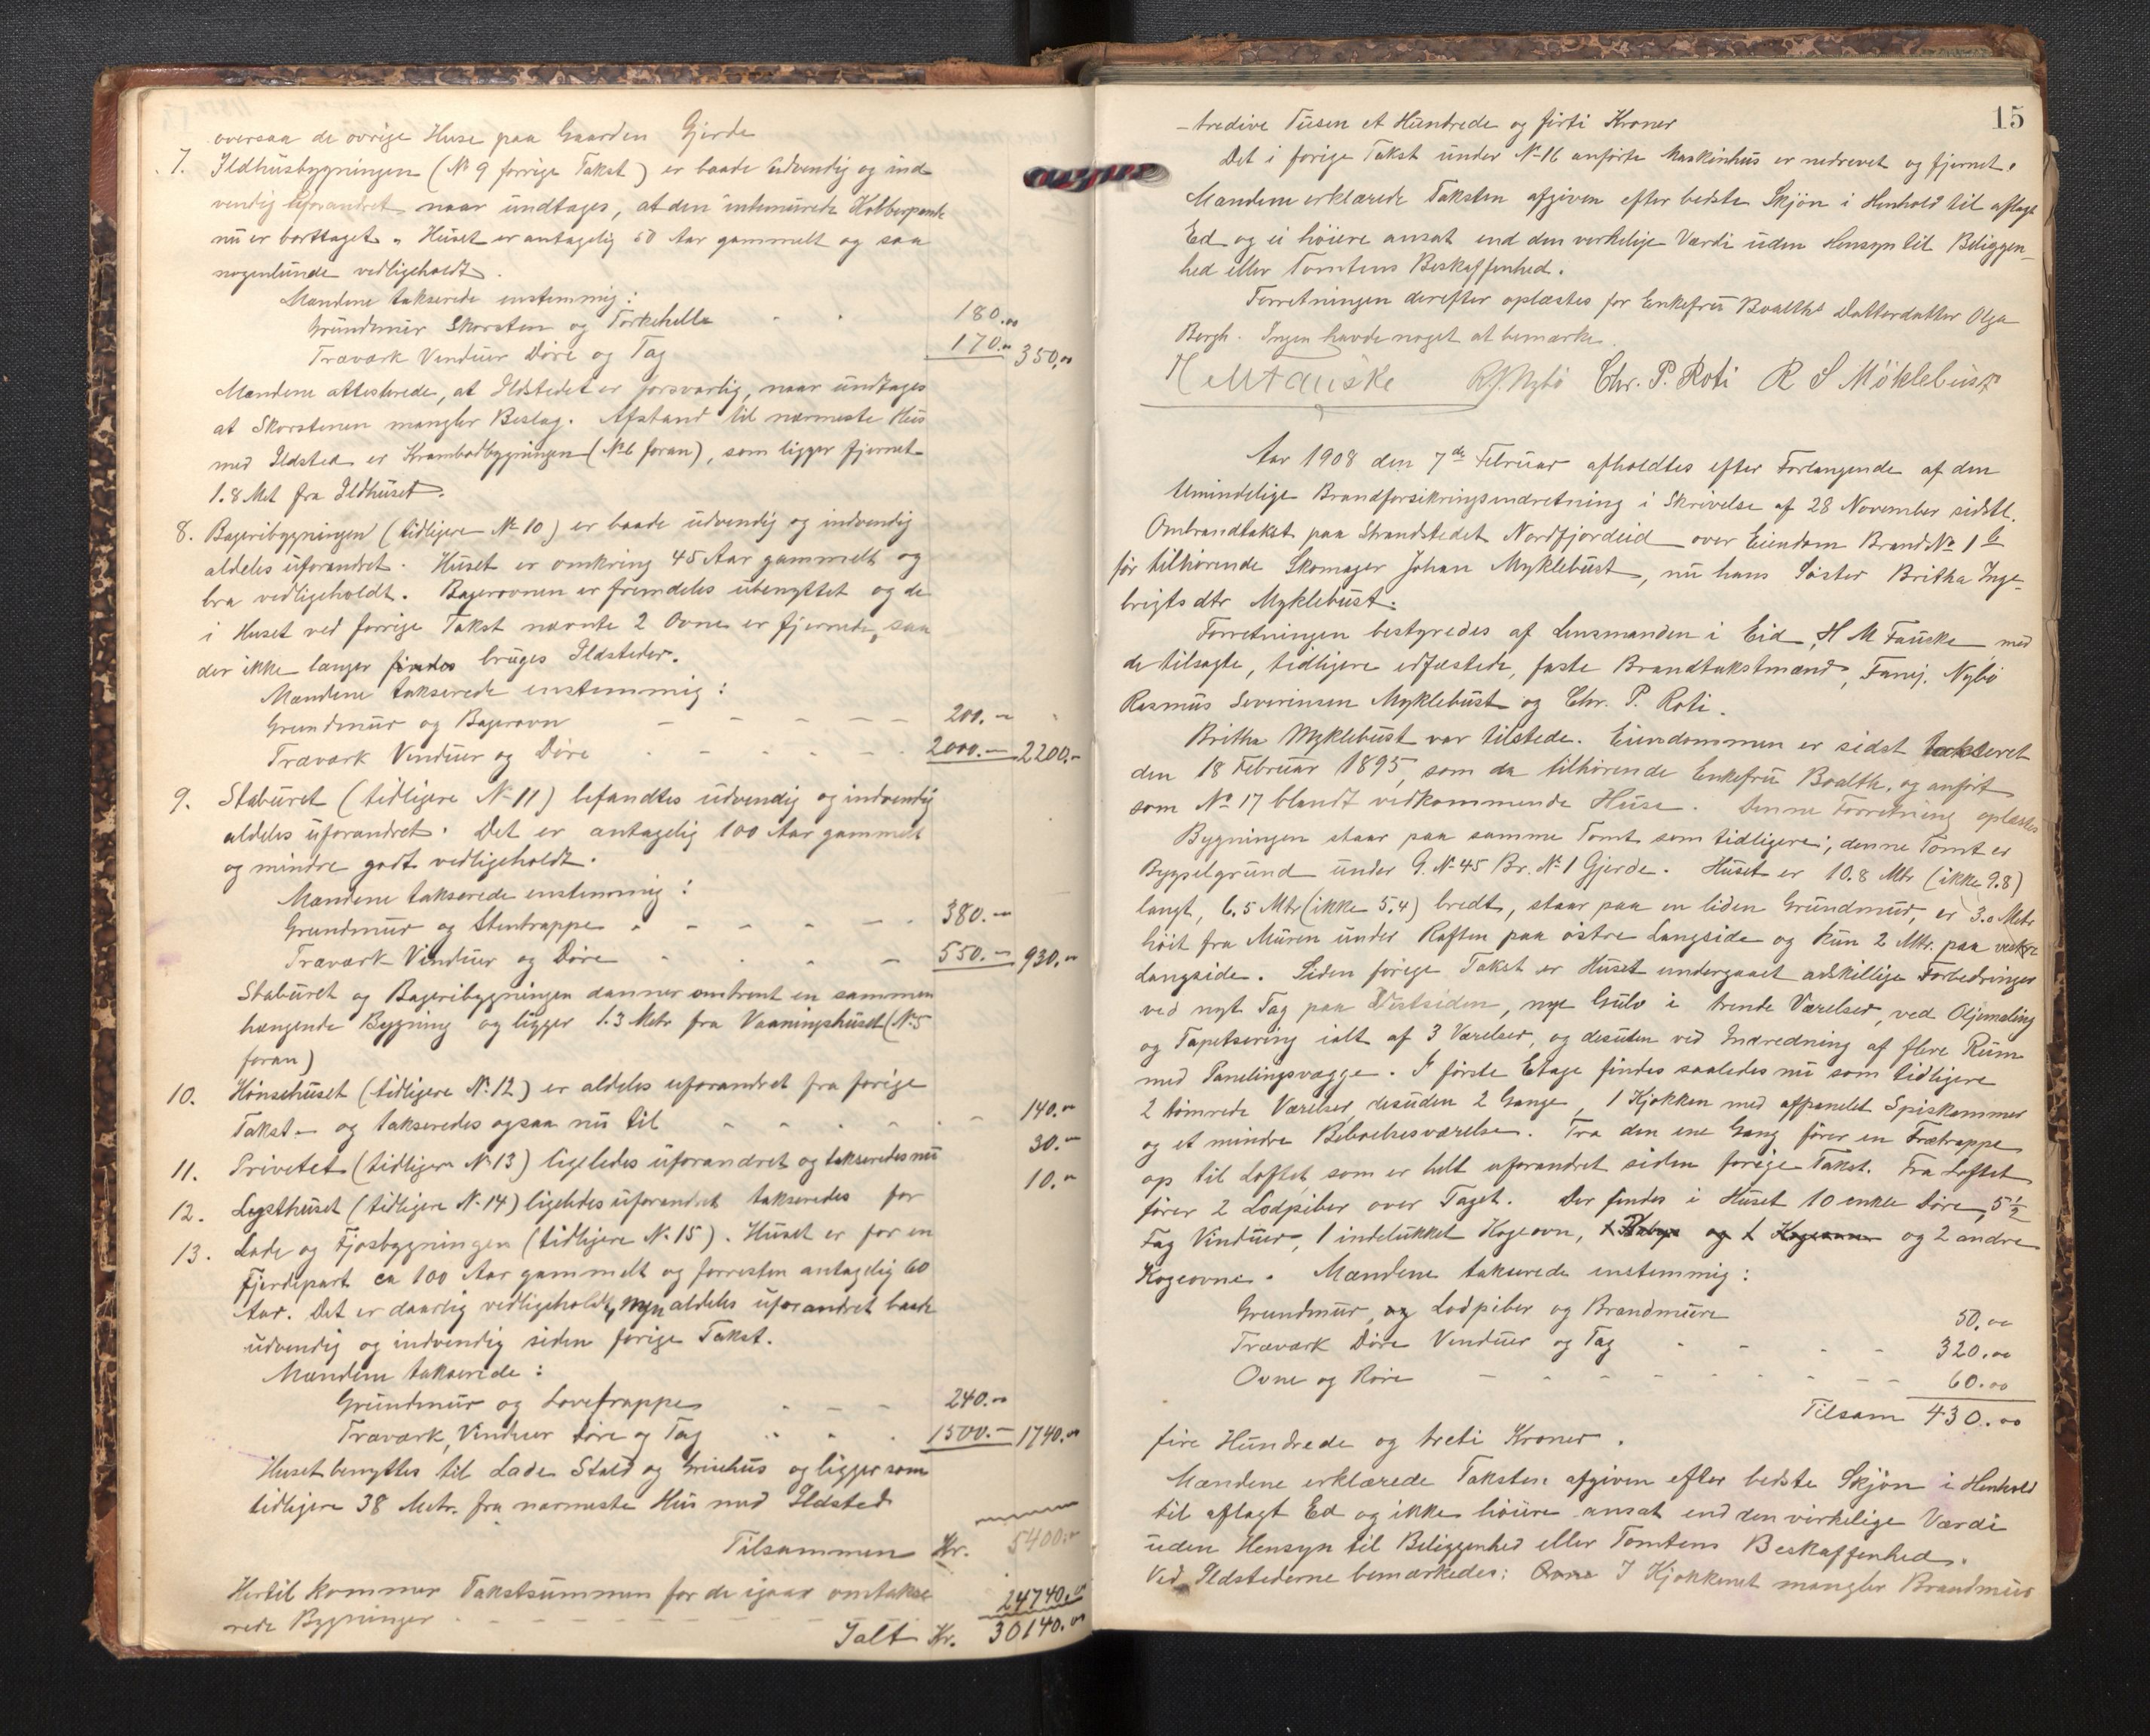 oversaa de øvrige Huse paa Gaarden Gjerde
7. Ildhusbygningen (No 9 forrige Takst) er baade udvendig og ind
vendig uforandret naar undtages, at den indemurede
nu er borttaget. Huset er antagelig 50 Aar gammelt og saa
nogenlunde vedligeholdt.
Mændene takserede enstemmig:
Grundmur Skorsten og Tørkehelle - - 180.00
Træværk Vinduer Døre og Tag 170.00 350.00
Mændene attesterede, at Ildstedet er forsvarlig, naar undtages
at Skorstenen mangler Beslag. Afstand til nærmeste Hus
med Ildsted er Krambodbygningen (No 6 foran), som ligger fjernet
1.8 Met fra Ildhuset.
8. Bageribygningen (tidligere No 10) er baade udvendig og indvendig
aldeles uforandret. Huset er omkring 45 Aar gammelt og
bra vedligeholdt. Bagerovnen er fremdeles ubenyttet og de
i Huset ved forrige Takst nævnte 2 Ovne er fjernede, saa
der ikke længer findes bruges Ildsteder.
Mændene takserede enstemmig:
Grundmur og Bagerovn - - - - - 200.-
Træværk Vinduer og Døre - - - - - 2000.- 2200.-
9. Staburet (tidligere No 11) befandtes udvendig og indvendig
aldeles uforandret. Det er antagelig 100 Aar gammelt
og mindre godt vedligeholdt.
Mændene takserede enstemmig:
Grundmur og Stentrappe - - - - - 380.-
Træværk Vinduer og Døre - - - 550.- 930.-
Staburet og Bageribygningen danner omtrent en sammen
hængende Bygning og ligger 1.3 Metr fra Vaaningshuset (No 5
foran)
10. Hønsehuset (tidligere No 12) er aldeles uforandret fra forige
Takst - og takseredes ogsaa nu til - - - - - 140.-
11. Privetet (tidligere No 13) ligeledes uforandret og takseredes nu 30.-
12. Lysthuset (tidligere No 14) ligeledes uforandret takseredes for 10.-
13. Lade og Fjøsbygningen (tidligere No 15). Huset er for en
Fjerdepart ca 100 Aar gammelt og forresten antagelig 60
Aar. Det er daarlig vedligeholdt, men aldeles uforandret baade
udvendig og indvendig siden forige Takst.
Mændene takserede:
Grundmur og Lovetrappe - - - 240.00
Træværk, Vinduer Døre og Tag - - - 1500.- 1740.00
Huset benyttes til Lade Stald og Grisehus og ligger som
tidligere 38 Metr. fra nærmeste Hus med Ildsted
Tilsammen Kr. 5400.00
Hertil kommer Takstsummen for de igaar omtakse
rede Bygninger - - - - - 24740.00
Ialt Kr. 30140.00
15
-tredive Tusen et Hundrede og firti Kroner
Det i forige Takst under No 16 anførte Maskinhus er nedrevet og fjernet.
Mændene erklærede Taksten afgiven efter bedste Skjøn i Henhold til aflagt
Ed og ei høiere ansat end den verkelige Værdi uden Hensyn til Beliggen-
hed eller Tomtens Beskaffenhed.
Forretningen derefter oplæstes for Enkefru Boalths Datterdatter Olga
Bergh. Ingen havde noget at bemærke.
H M Fauske R J Nybø Chr. P. Roti R S Møklebust
Aar 1908 den 7de Februar afholdtes efter Forlangende af den
Almindelige Brandforsikringsindretning i Skrivelse af 28 November sidstl.
Ombrandtakst paa Strandstedet Nordfjordeid over Eiendom Brand No 1 b
før tilhørende Skomager Johan Myklebust, nu hans Søster Britha Inge-
brigtsdtr Myklebust.
Forretningen bestyredes af Lensmanden i Eid, H M Fauske med
de tilsagte, tidligere edfæstede, faste Brandtakstmænd, Nybø
Rasmus Severinsen Myklebust og Chr. P. Roti.
Britha Myklebust var tilstede. Eiendommen er sidst takseret
den 18 Februar 1895, som da tilhørende Enkefru Boalth, og anført
som No 17 blandt vedkommende Huse. Denne Forretning oplæstes
Bygningen staar paa samme Tomt som tidligere; denne Tomt er
Bygselgrund under G. No 45 Br. No 1 Gjerde. Huset er 10.8 Mtr (ikke 9.8)
langt, 6.5 Mtr (ikke 5.4) bredt, staar paa en liden Grundmur, er 3.0 Metr
høit fra Muren under Raften paa østre Langside og kun 2 Mtr. paa vestre
Langside. Siden forige Takst er Huset undergaaet adskillige Forbedringer
ved nyt Tag paa Vestsiden, nye Gulv i trende Værelser, ved Oljemaling
og Tapetsering ialt af 3 Værelser, og desuden ved Indredning af flere Rum
med Panelingsvægge. I første Etage findes saaledes nu som tidligere
2 tømrede Værelser desuden 2 Gange, 1 Kjøkken med afpanelet Spiskammer
og et mindre Beboelsesværelse. Fra den ene Gang fører en Trætrappe
op til Loftet som er helt uforandret siden forige Takst. Fra Loftet
fører 2 Lodpiber over Taget. Der findes i Huset 10 enkle Døre, 5 1/2
Fag Vinduer, 1 indelukket Kogeovn, og 2 andre
Kogeovne. Mændene takserede enstemmig:
Grundmur, og Lodpiber og Brandmure 50.00
Træværk Døre Vinduer og Tag - - - - 320.00
Ovne og Rør - - - - - - - - 60.00
Tilsam 430.00
fire Hundrede og treti Kroner.
Mændene erklærede Taksten afgiven efter bedste Skjøn i Henhold
til aflagt Ed og ikke høiere ansat end den virkelige Værdi
uden Hensyn til Beliggenhed eller Tomtens Beskaffenhed.
Ved Ildstederne bemærkedes: Ovne I Kjøkkenet mangler Brandmur